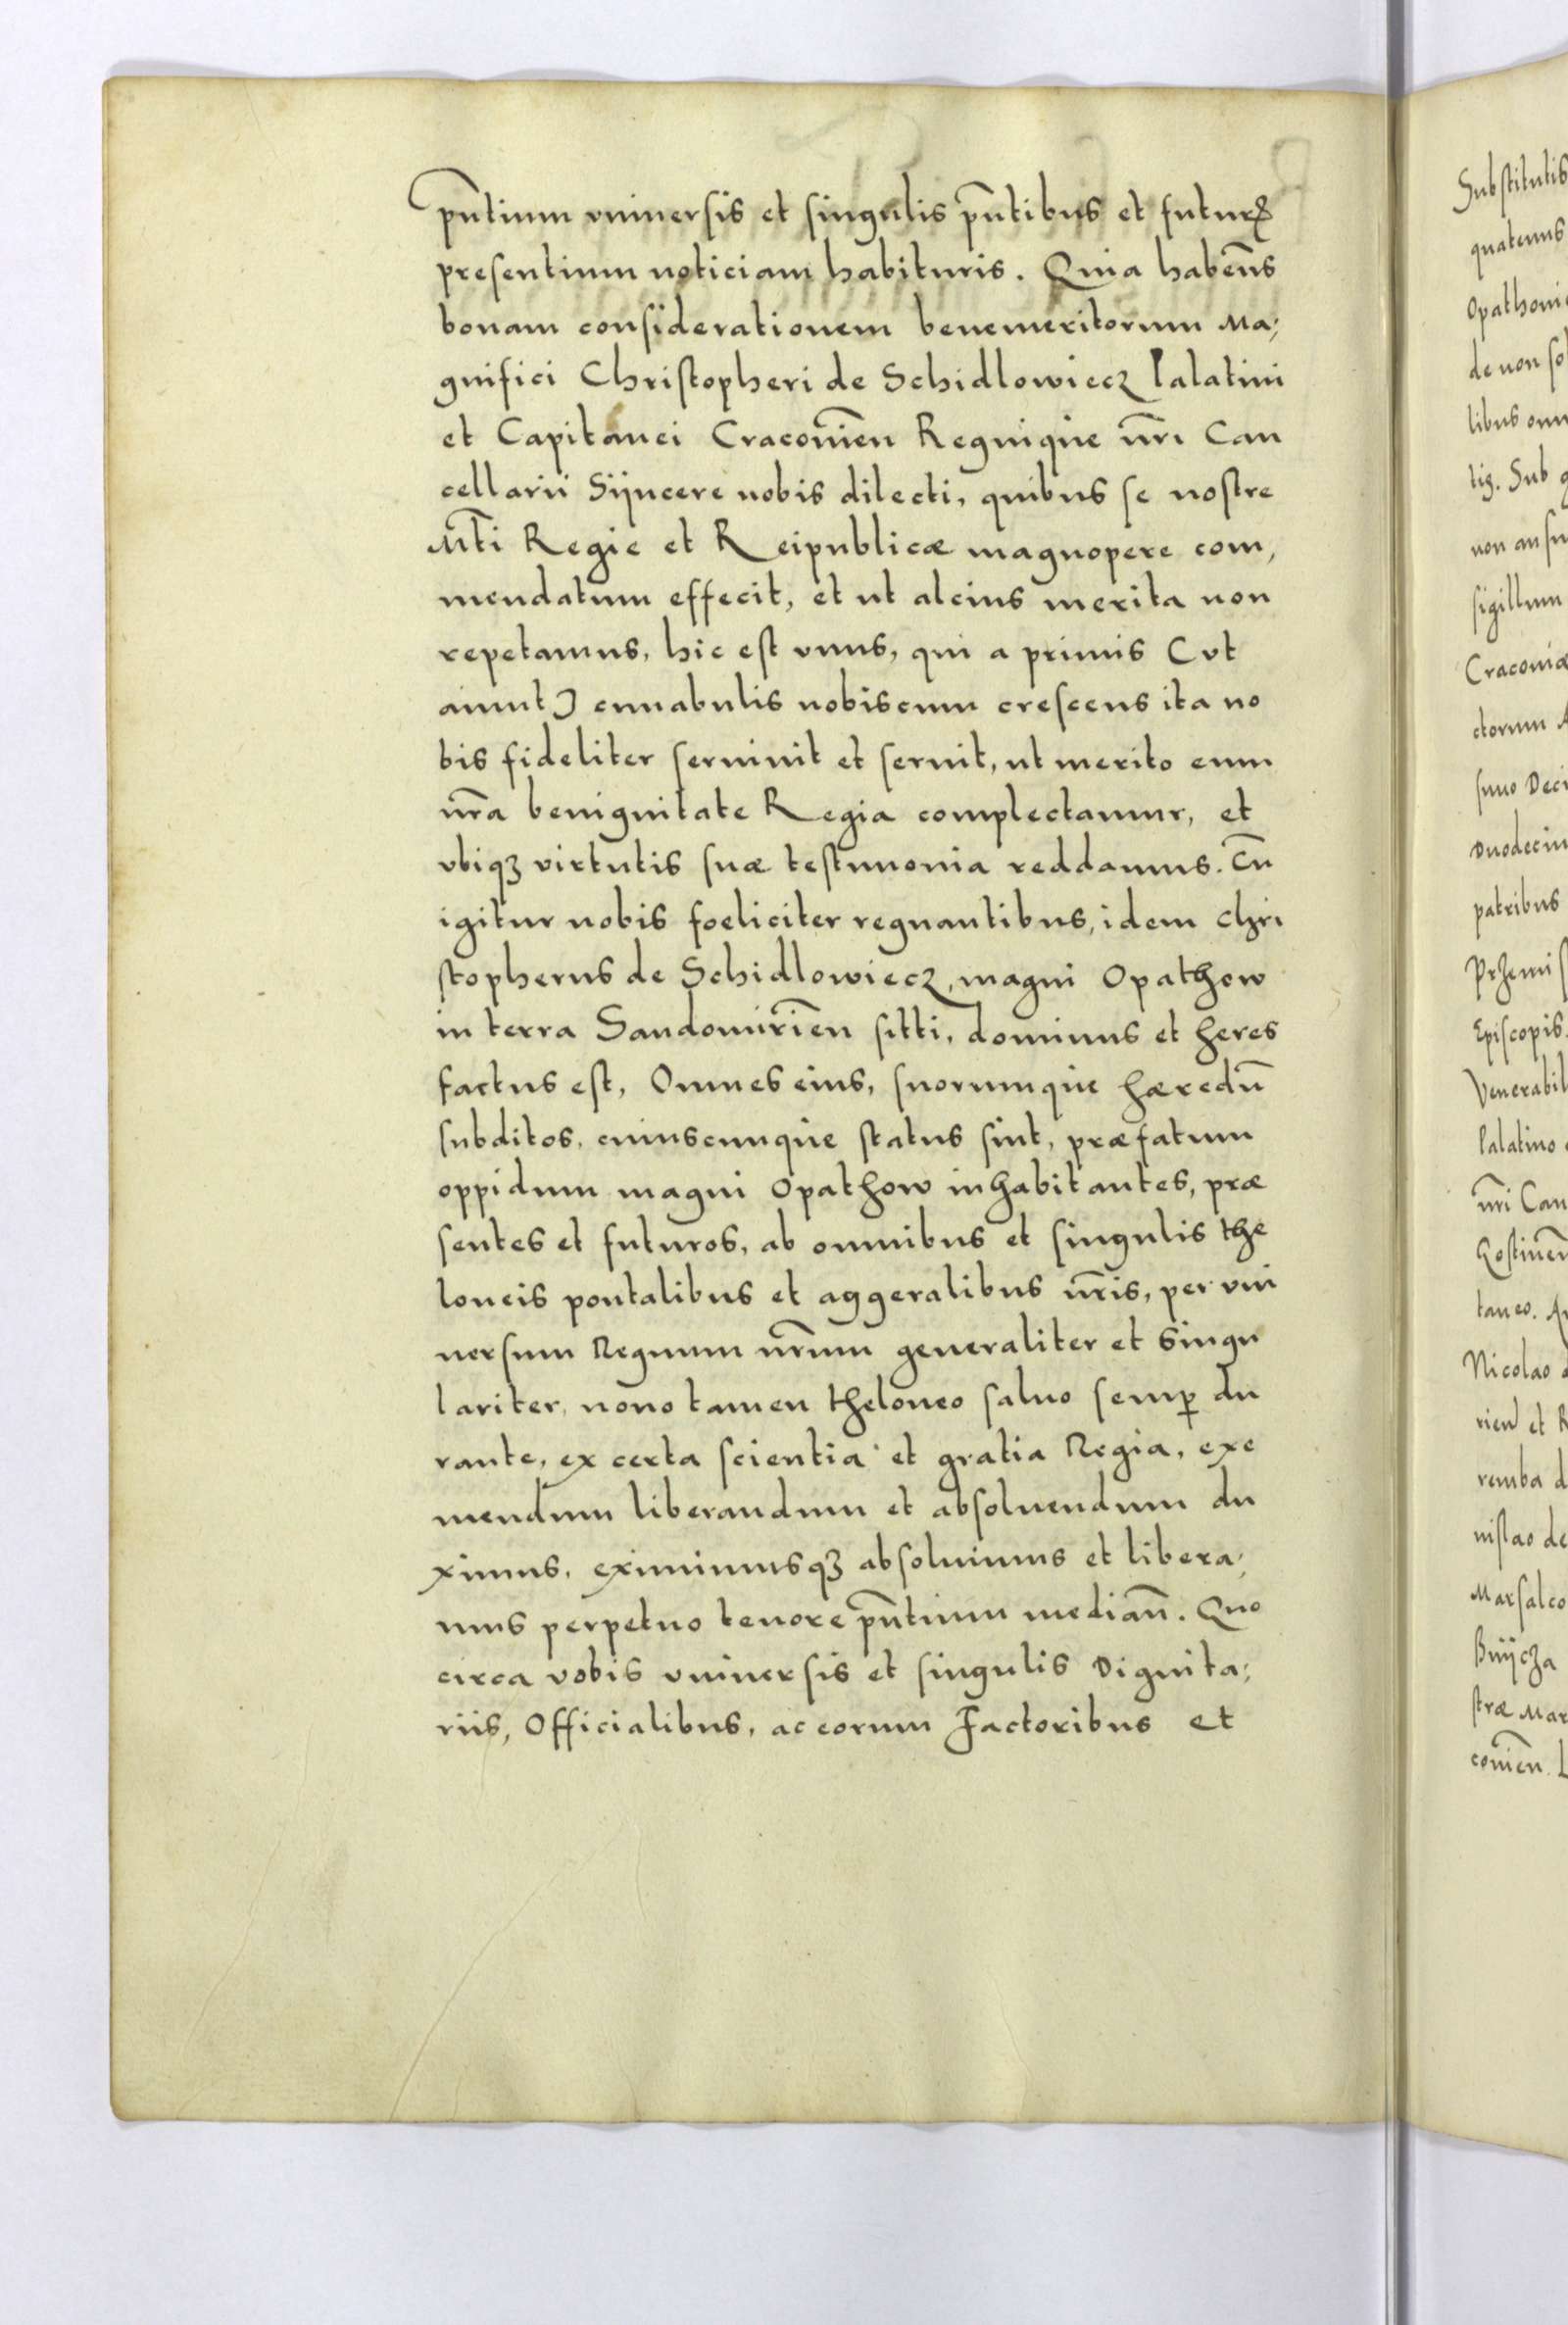 pn̄tium vniuersis et singulis pn̄tibus et futurꝝ
presentium noticiam habituris. Quia haben̄s
bonam considerationem benemeritorum Ma;
gnifici Christopheri de Schidlowiecz Palatini
et Capitanei Cracouien̄ Regnique nr̄i Can
cellarii Sÿncere nobis dilecti, quibus se nostre
Mt̄i Regie et Reipublicæ magnopere com,
mendatum effecit, et ut alcius merita non
repetamus, hic est vnus, qui a primis (vt
aiunt) cunabulis nobiscum crescens ita no
bis fideliter seruiuit et seruit, ut merito eum
nr̄a benignitate Regia complectamur, et
vbiqꝫ virtutis suæ testimonia reddamus. Cū
igitur nobis foeliciter regnantibus, idem Chri
stopherus de Schidlowiecz, magni Opathow
in terra Sandomirien̄ sitti, dominus et heres
factus est, Omnes eius, suorumque hæredū
subditos, cuiuscunque status sint, præfatum
oppidum magni Opathow inhabitantes, præ
sentes et futuros, ab omnibus et singulis the
loneis pontalibus et aggeralibus nr̄is, per vni
uersum Regnum nr̄um generaliter et Singu
lariter, nouo tamen theloneo saluo semꝑ du
rante, ex certa scientia et gratia Regia, exe
mendum liberandum et absoluendum du
ximus, eximimusqꝫ absoluimus et libera;
mus perpetuo tenore pn̄tium median̄. Quo
circa vobis vniuersis et singulis Dignita;
riis, Officialibus, ac eorum Factoribus et
Substitutis
quatenus
de non
tis. Sub
sigillum
ctorum
patribus
Episcopis.
Palatino
nr̄i Can
taneo.
Nicolao
rien̄ et